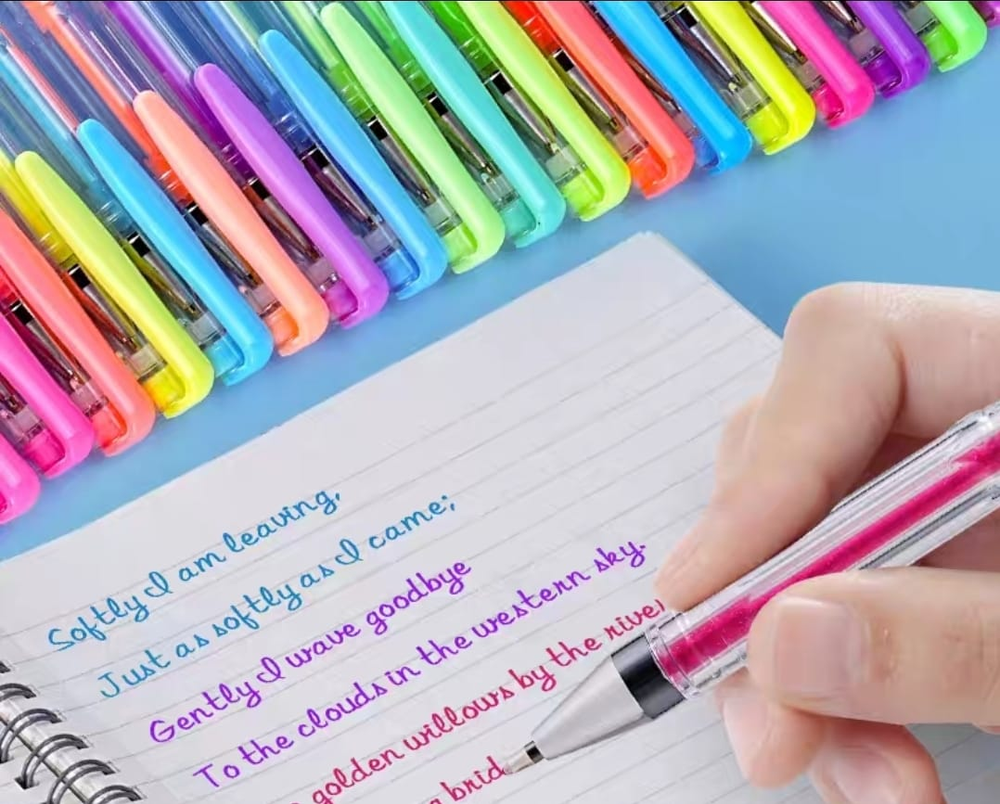 Softly I am leaving,
Just as softly as I came;
Gently I wave goodbye
To the clouds in the western sky.
golden willows by the river
brid